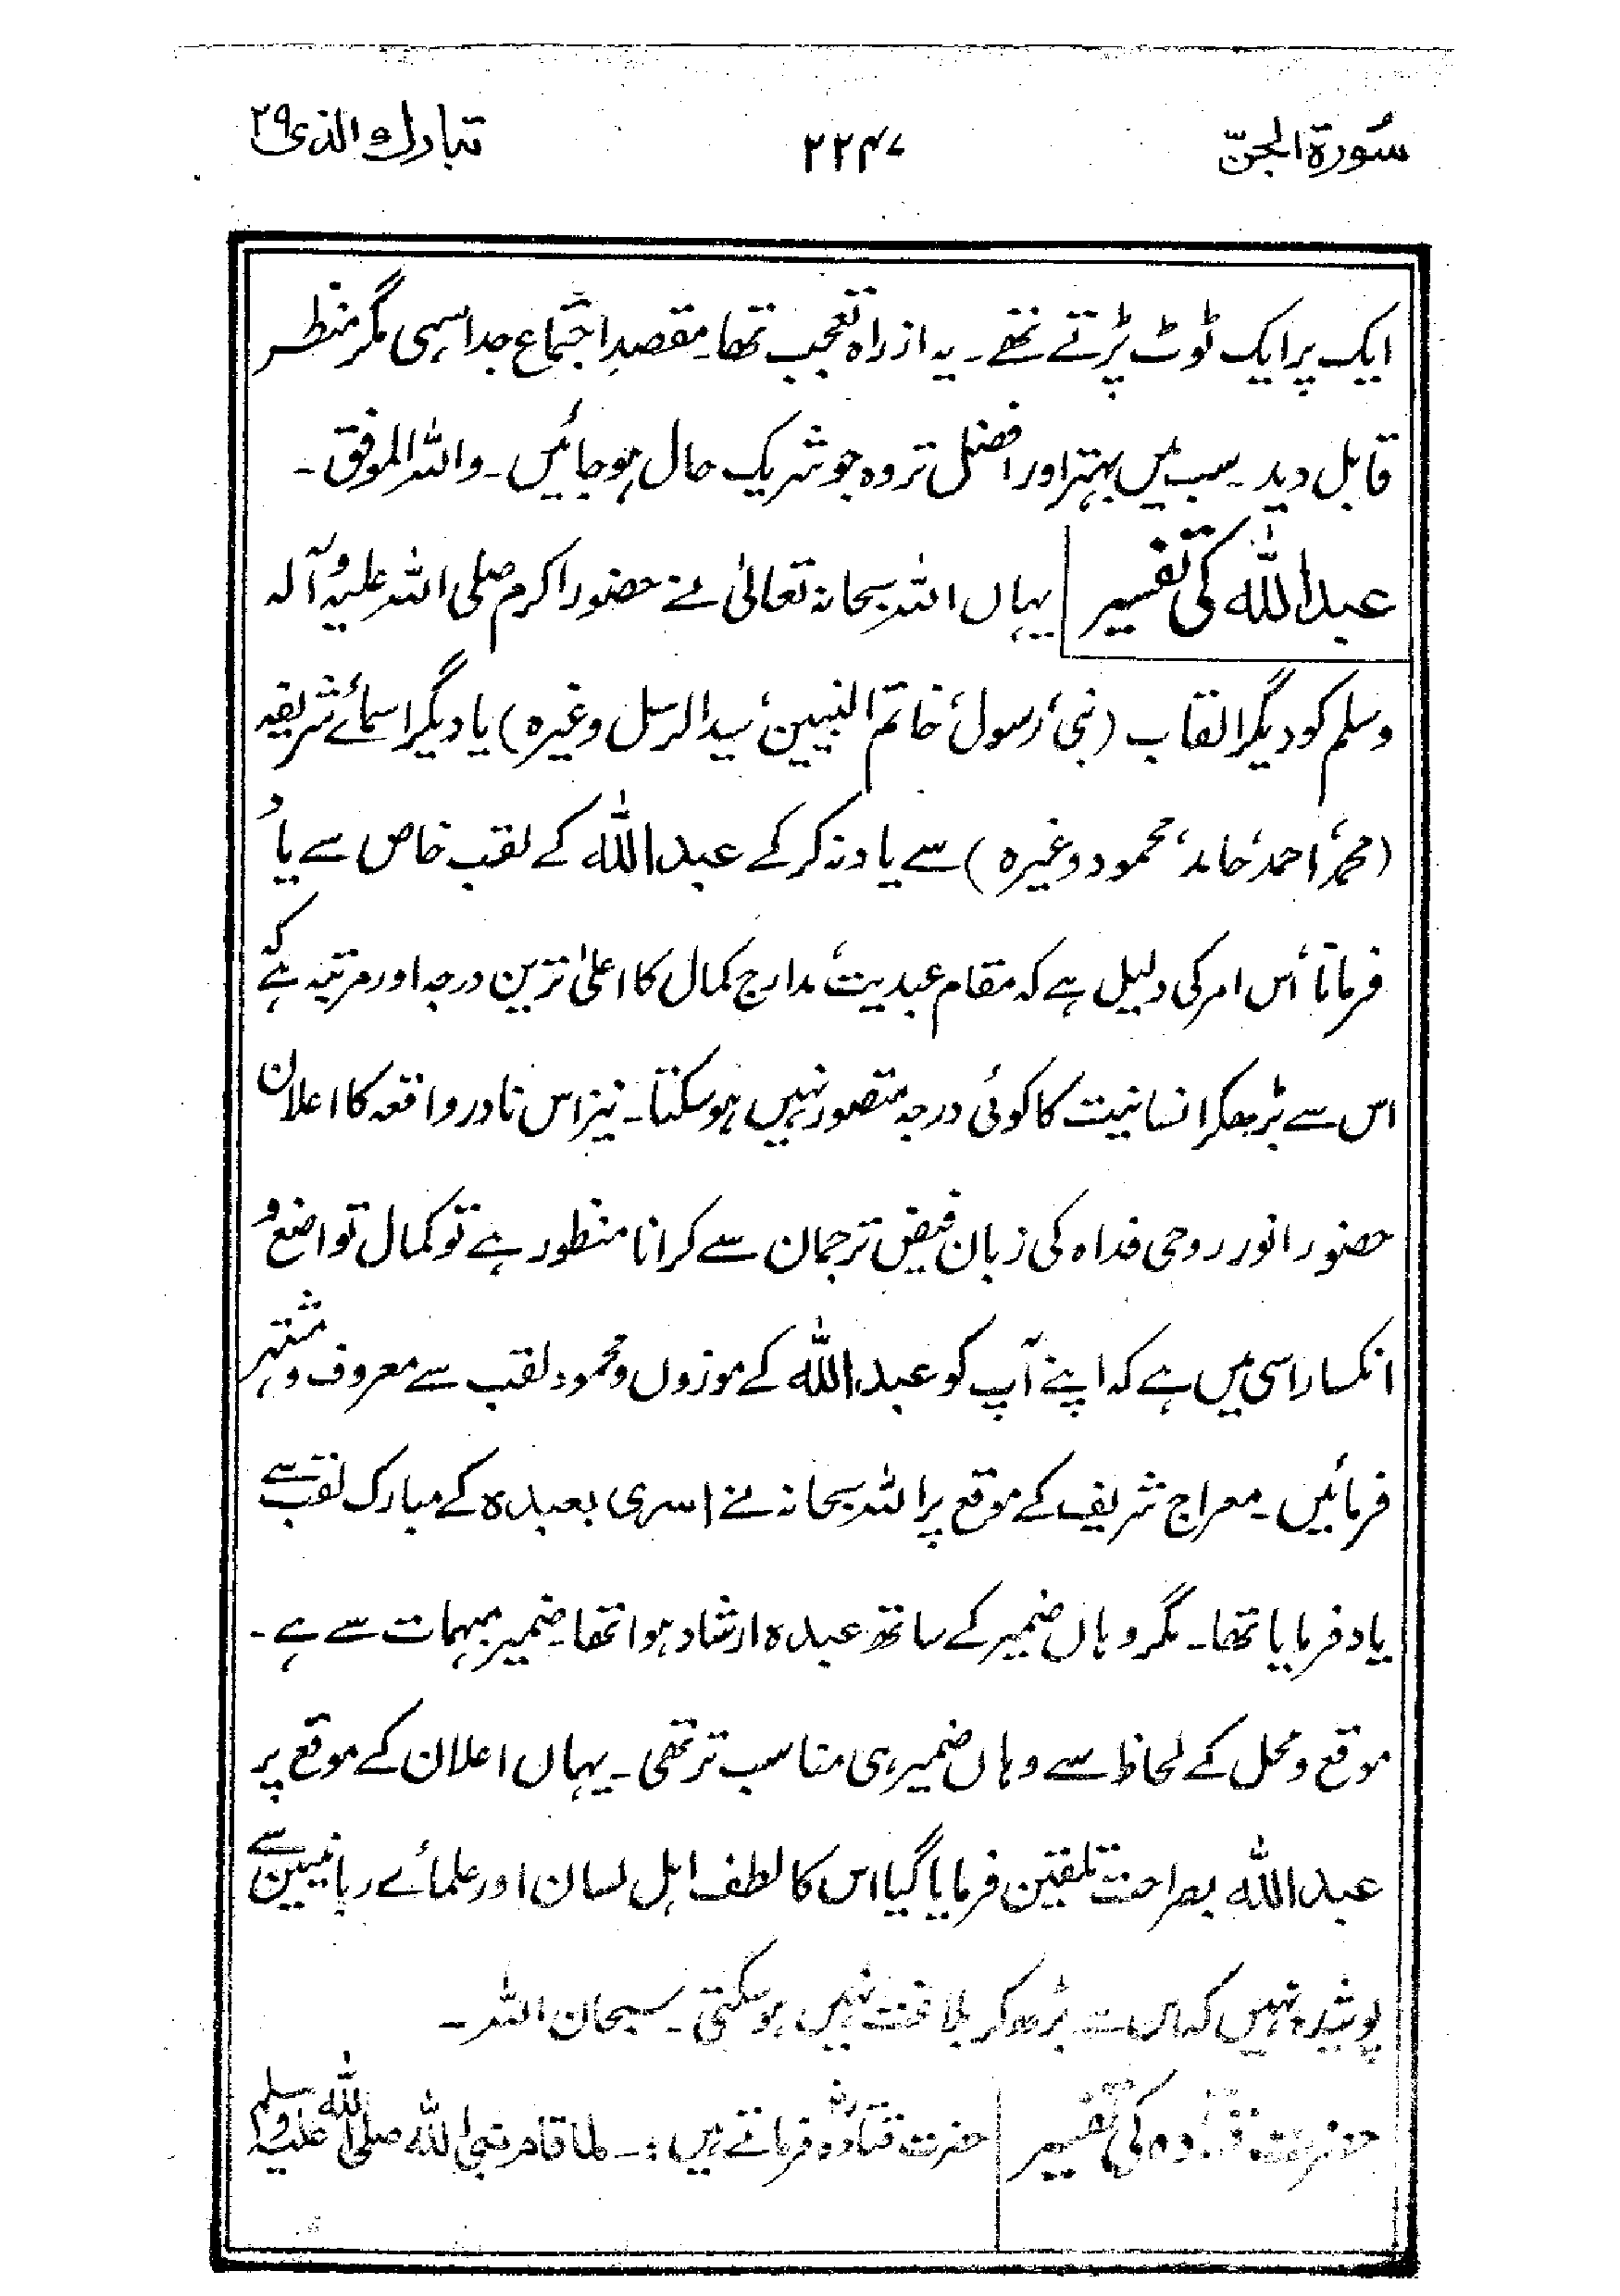 سُورۃ الجنّ ۲۲۴۷ تبارك الذی ۲۹
ایک پر ایک ٹوٹ پڑتے تھے۔ یہ از راہ تعجب تھا۔ مقصدِ اجتماع جدا سہی مگر منظر
قابل دید۔ سب میں بہتر اور افضل تر وہ جو شریک حال ہو جائیں۔ واللہ الموفق۔
عبداللہ کی تفسیر یہاں اللہ سبحانہ تعالیٰ نے حضور اکرم صلی اللہ علیہ و آلہ
وسلم کو دیگر القاب (نبی، رسول، خاتم النبیین، سید الرسل وغیرہ) یا دیگر اسمائے شریفہ
(محمد، احمد، حامد، محمود وغیرہ) سے یاد نہ کر کے عبداللہ کے لقب خاص سے یاد
فرمانا، اس امر کی دلیل ہے کہ مقام عبدیت، مدارج کمال کا اعلیٰ ترین درجہ اور مرتبہ ہے کہ
اس سے بڑھکر انسانیت کا کوئی درجہ متصور نہیں ہو سکتا۔ نیز اس نادر واقعہ کا اعلان
حضور انور روحی فداہ کی زبان فیض ترجمان سے کرانا منظور ہے تو کمال تواضع و
انکسار اسی میں ہے کہ اپنے آپ کو عبداللہ کے موزوں و محمود لقب سے معروف و مشتہر
فرمائیں۔ معراج شریف کے موقع پر اللہ سبحانہ نے اسری بعبدہ کے مبارک لقب سے
یاد فرمایا تھا۔ مگر وہاں ضمیر کے ساتھ عبدہ ارشاد ہوا تھا۔ ضمیر مبہمات سے ہے۔
موقع و محل کے لحاظ سے وہاں ضمیر ہی مناسب تر تھی۔ یہاں اعلان کے موقع پر
عبداللہ بصراحت تلقین فرمایا گیا اس کا لطف اہل لسان اور علمائے ربانیین سے
پوشیدہ نہیں کہ اس سے بڑھ کر بلاغت نہیں ہو سکتی۔ سبحان اللہ۔
حضرت قتادہ کی تفسیر حضرت قتادہؓ فرماتے ہیں:۔ لما قام نبی اللہ صلی اللہ علیہ وسلم